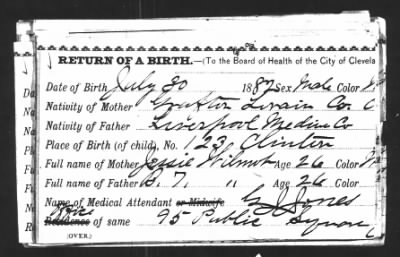 RETURN OF A BIRTH.—(To the Board of Health of the City of Clevela
Date of Birth July 30 1887 Sex Male Color
Nativity of Mother Grafton Lorain Co. O
Nativity of Father Liverpool Medina Co
Place of Birth (of child), No. 123 Clinton
Full name of Mother Jessie Wilmot Age 26 Color
Full name of Father B. F. " Age 26 Color
Name of Medical Attendant or Midwife G J Jones
Office
Residence of same 95 Public Square
(OVER.)